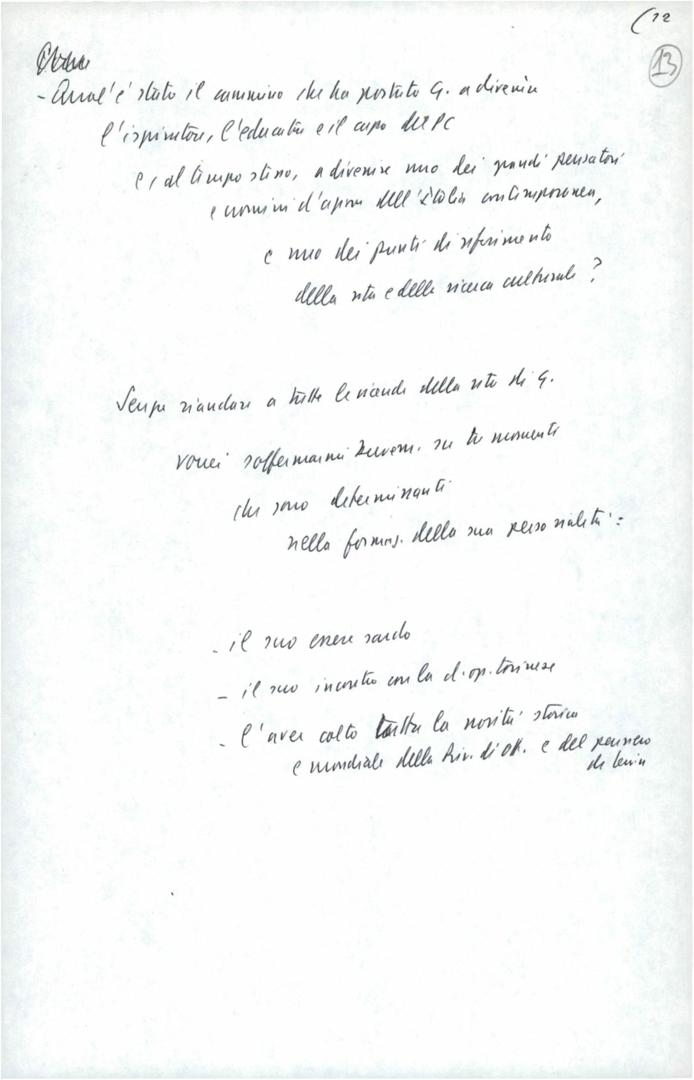 (12
13
- Qual'è stato il cammino che ha portato G. a divenire
l'ispiratore, l'educatore e il capo del PC
e, al tempo stesso, a divenire uno dei grandi pensatori
e uomini d'azione dell'Italia contemporanea,
e uno dei punti di riferimento
della vita e della ricerca culturale?
Senza riandare a tutte le vicende della vita di G.
vorrei soffermarmi brevem. su tre momenti
che sono determinanti
nella formaz. della sua personalità:
- il suo essere sardo
- il suo incontro con la cl. op. torinese
- l'aver colto tutta la novità storica
e mondiale della Riv. di Ott. e del pensiero
di Lenin